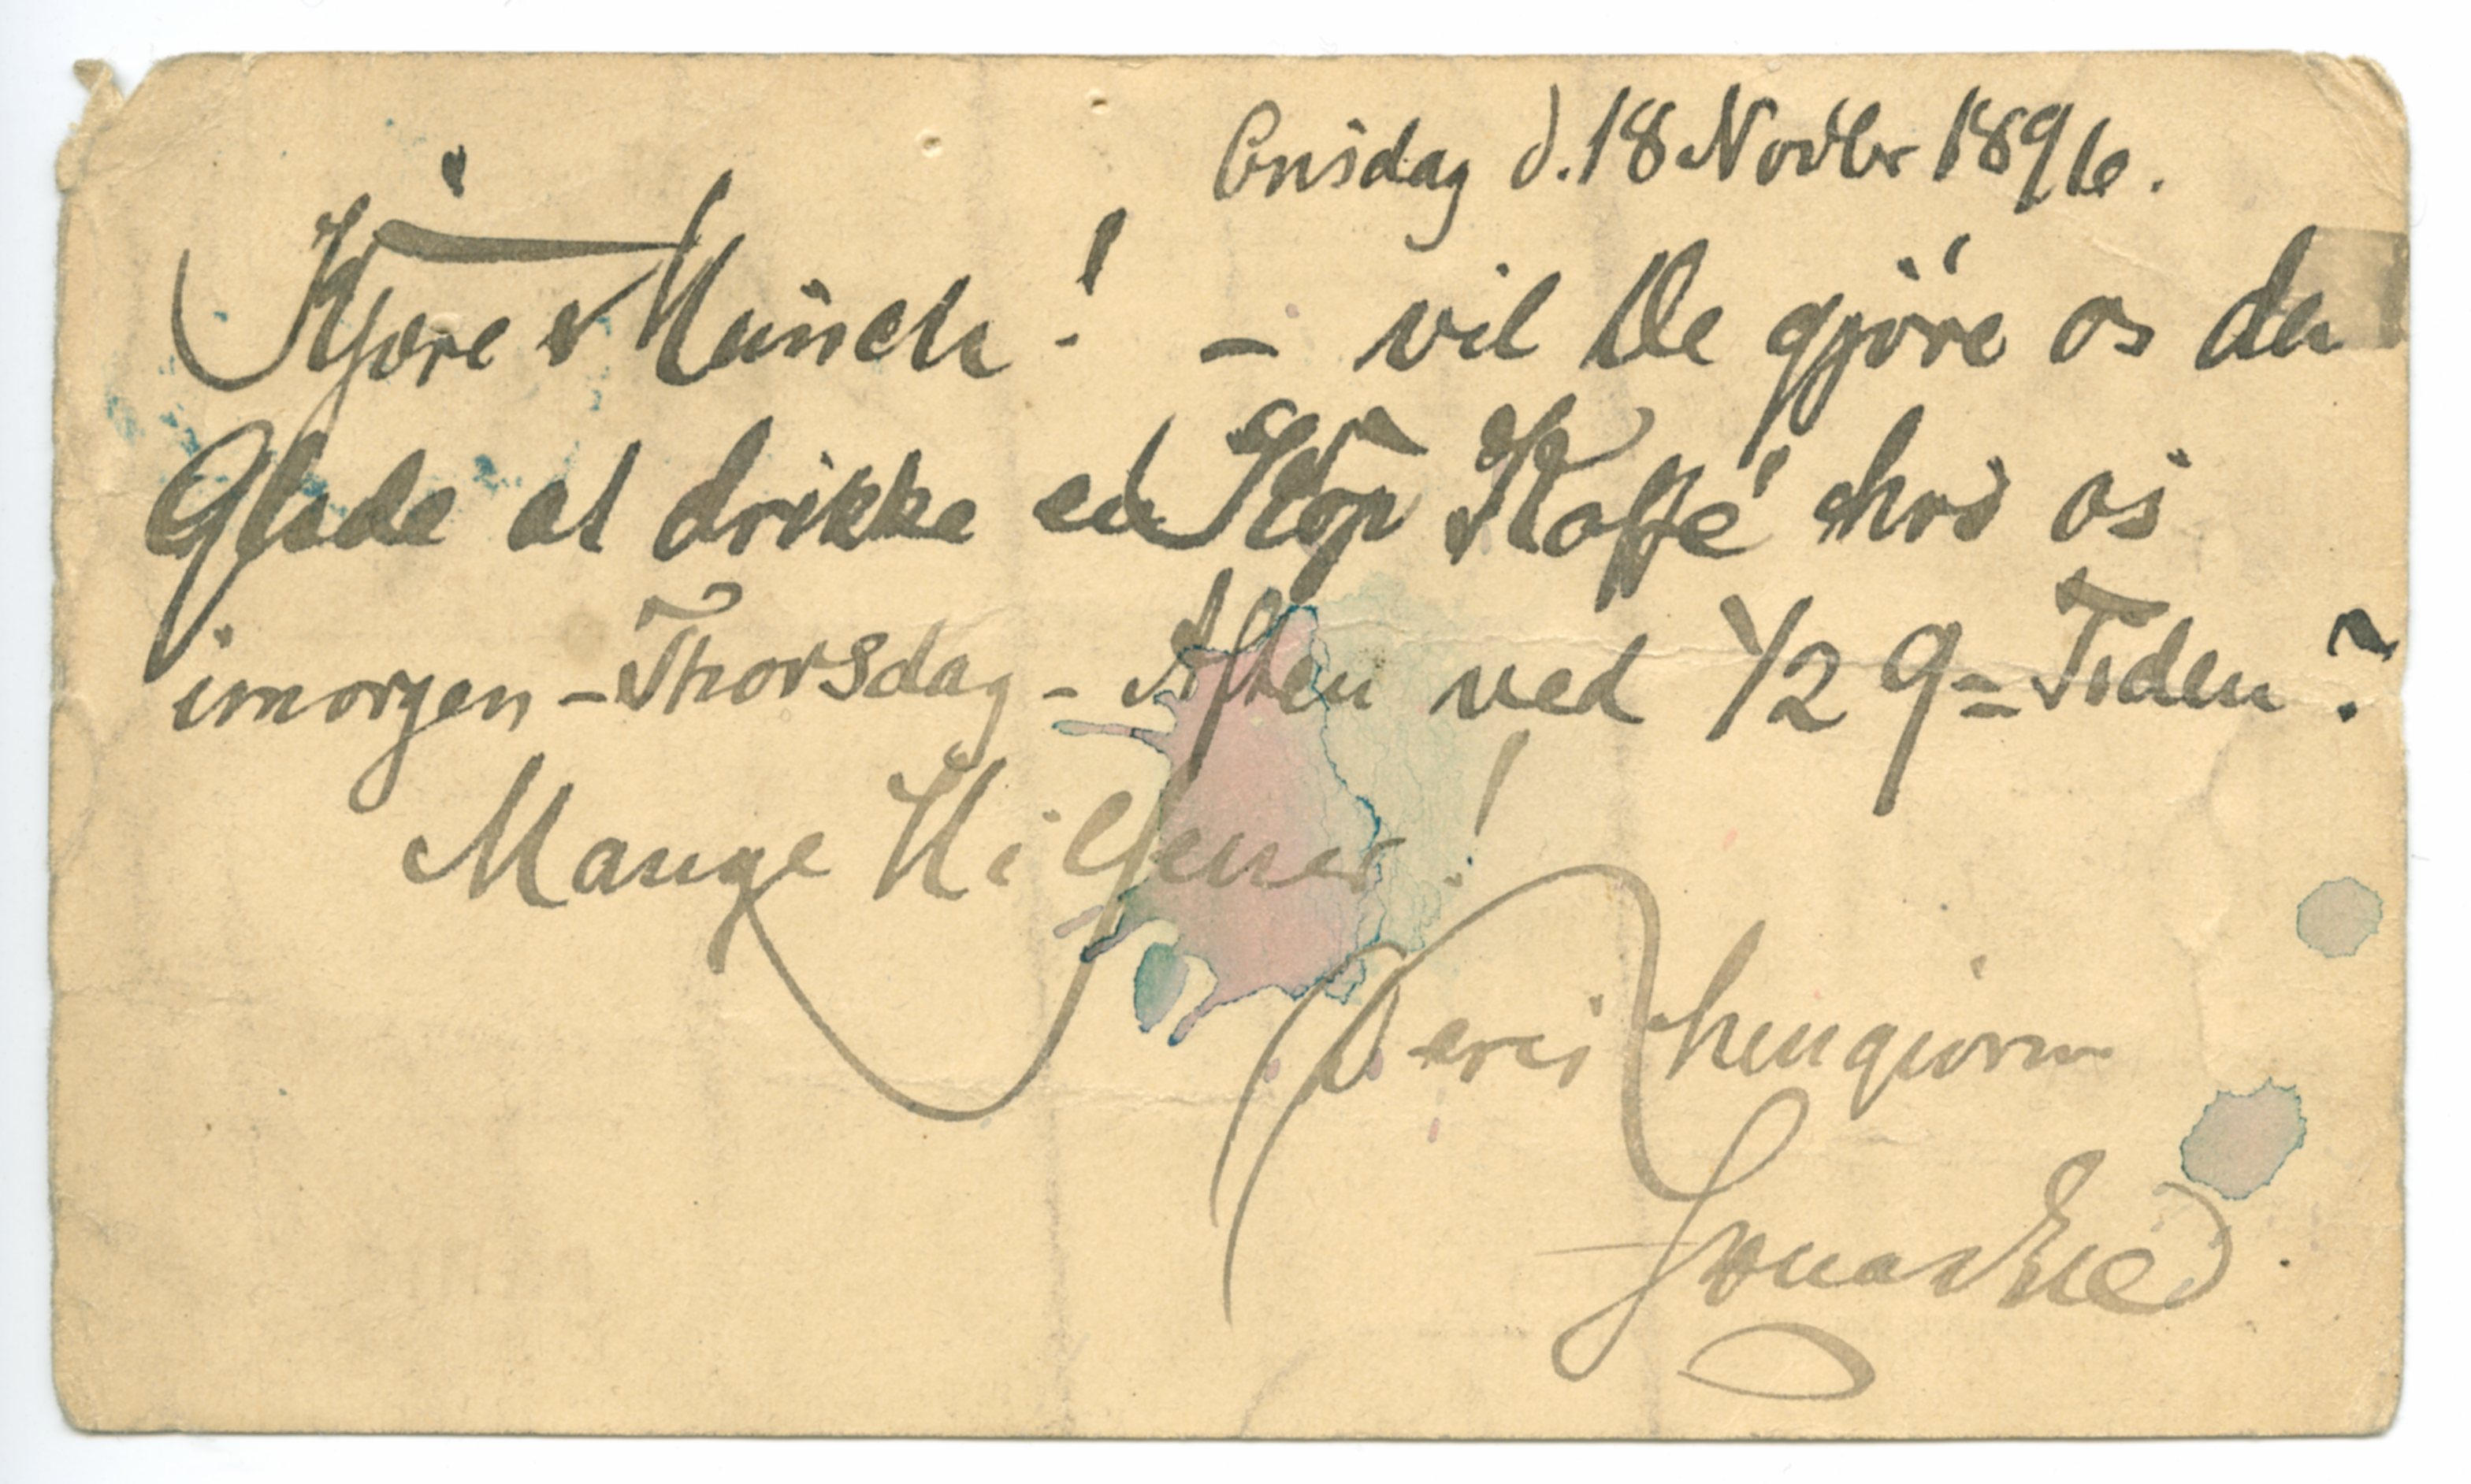 Onsdag d. 18 Novbr 1896.
Kjære Munch! – vil De gjöre os den
Glæde at drikke en Kop Kaffé hos os
imorgen – Thorsdag – Aften ved 1/2 9=Tiden?
Mange Hilsener!
Deres hengivne
Jonas Lie